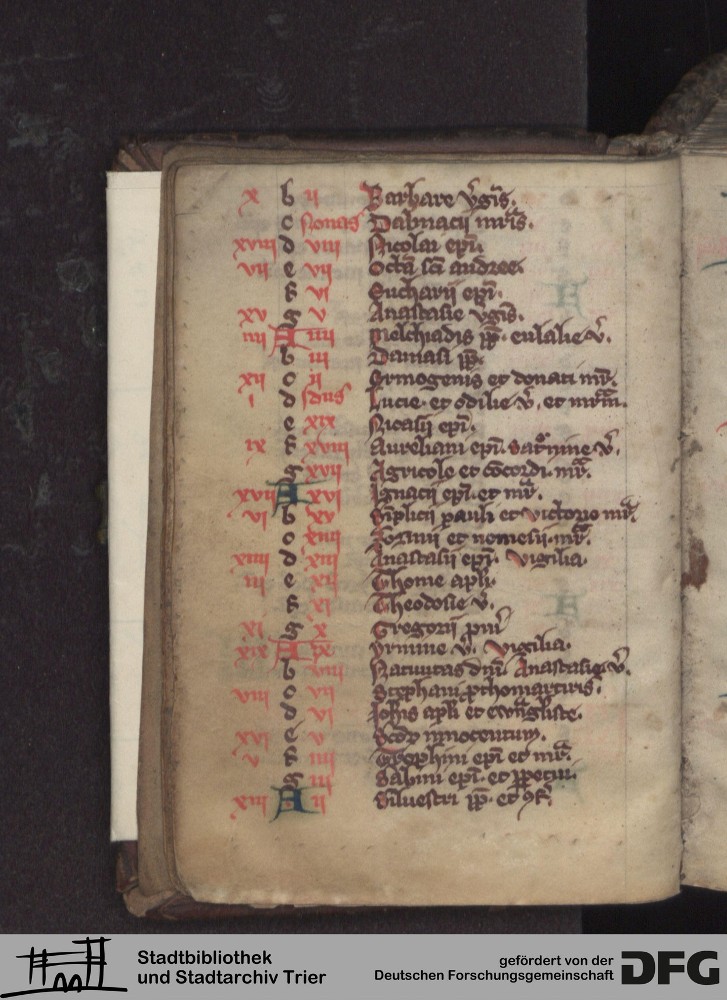 x b ii Barbare v̄gīs.
c Nonas Dalmacii mr̄is.
xviii d viii Nicolai epī.
vii e vii Octā sc̄i andree
f vi Eucharij epī.
xv g v Anastasie vgīs.
iiii A iiii Melchiadis pp̄. eulalie v̄.
b iii Damasi pp̄.
xii c ii Ormogenis et donati mr̄.
i d Idus Lucie et odilie v̄. et mr̄m.
e xix Nicasii epī.
ix f xviii Aureliani epī. v̄.
g xvii Agricole et cōcordi. mr̄.
xvii A xvi Ignacij epī. et mr̄.
vi b xv Sīplicii pauli et victorie mr̄.
c xiiii et nemesii. mr̄.
xiiii d xiii Anastasii epī. vigilia
iii e xii Thome apl̄i.
f xi Theodosie v̄.
xi g x Gregorij
xix A ix v̄. vigilia.
b viii Natiuitas dnī. Anastasie v̄.
viii c vii Stephani p̄thomartiris.
d vi Ioh̄is apl̄i et ewāgliste.
xvi e v Scōꝝ innocentum.
v f iiii Trophini epī et mr̄.
g iii Sabini epī. et
xiii A ii Siluestri pp̄. et ꝯf̄.
Stadtbibliothek
und Stadtarchiv Trier
gefördert von der
Deutschen Forschungsgemeinschaft
DFG